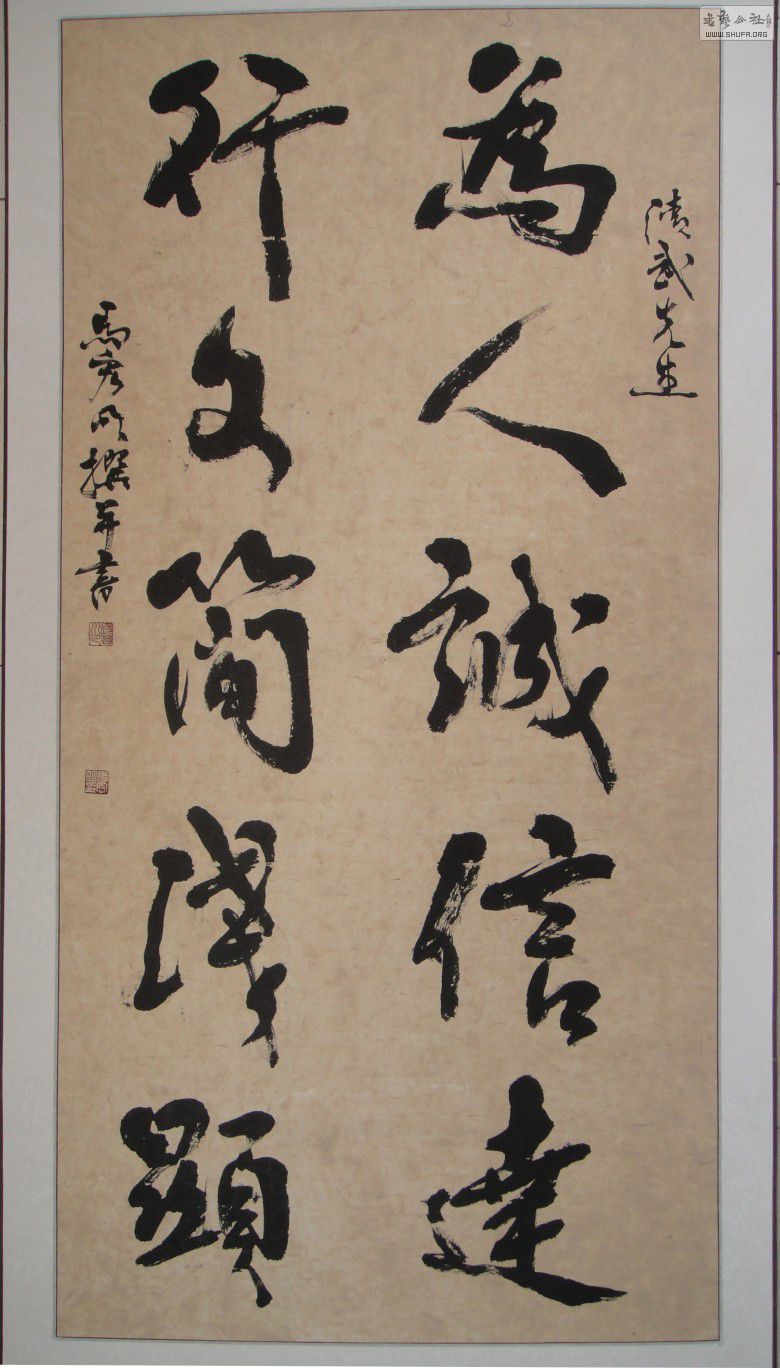 清武先生
為人誠信達
行文簡淺顯
馬
撰并書
書藝公社
WWW.SHUFA.ORG